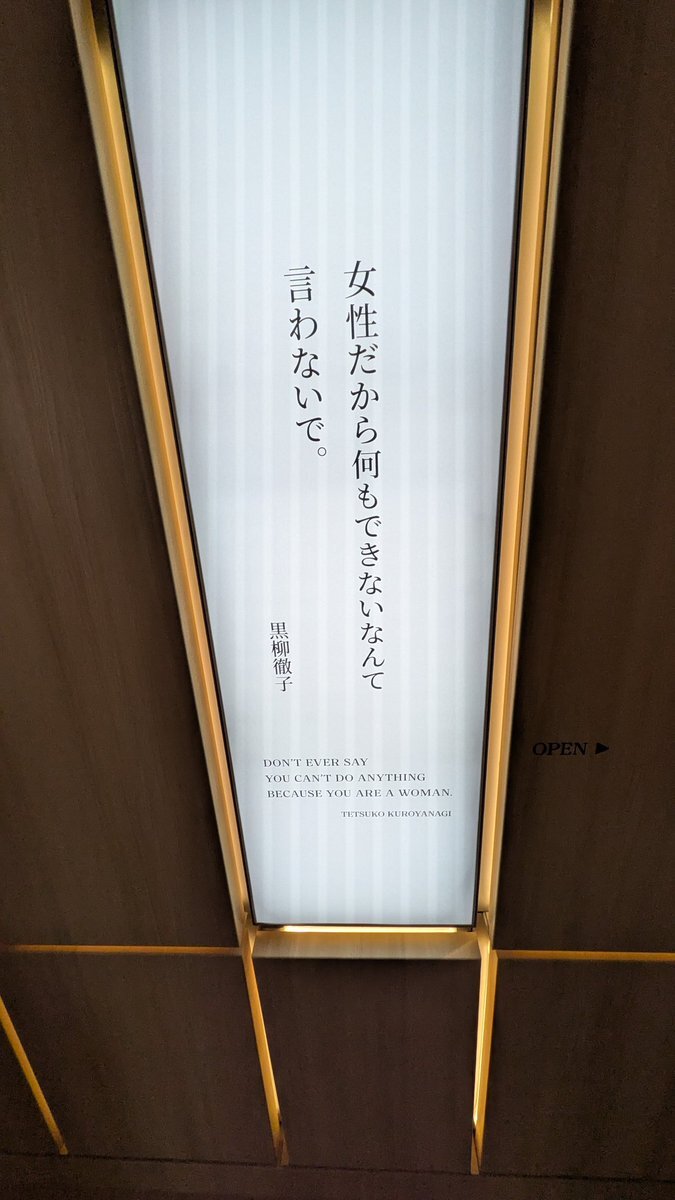 女性だから何もできないなんて
言わないで。
黒柳徹子
DON'T EVER SAY
YOU CAN'T DO ANYTHING
BECAUSE YOU ARE A WOMAN.
TETSUKO KUROYANAGI
OPEN ▶